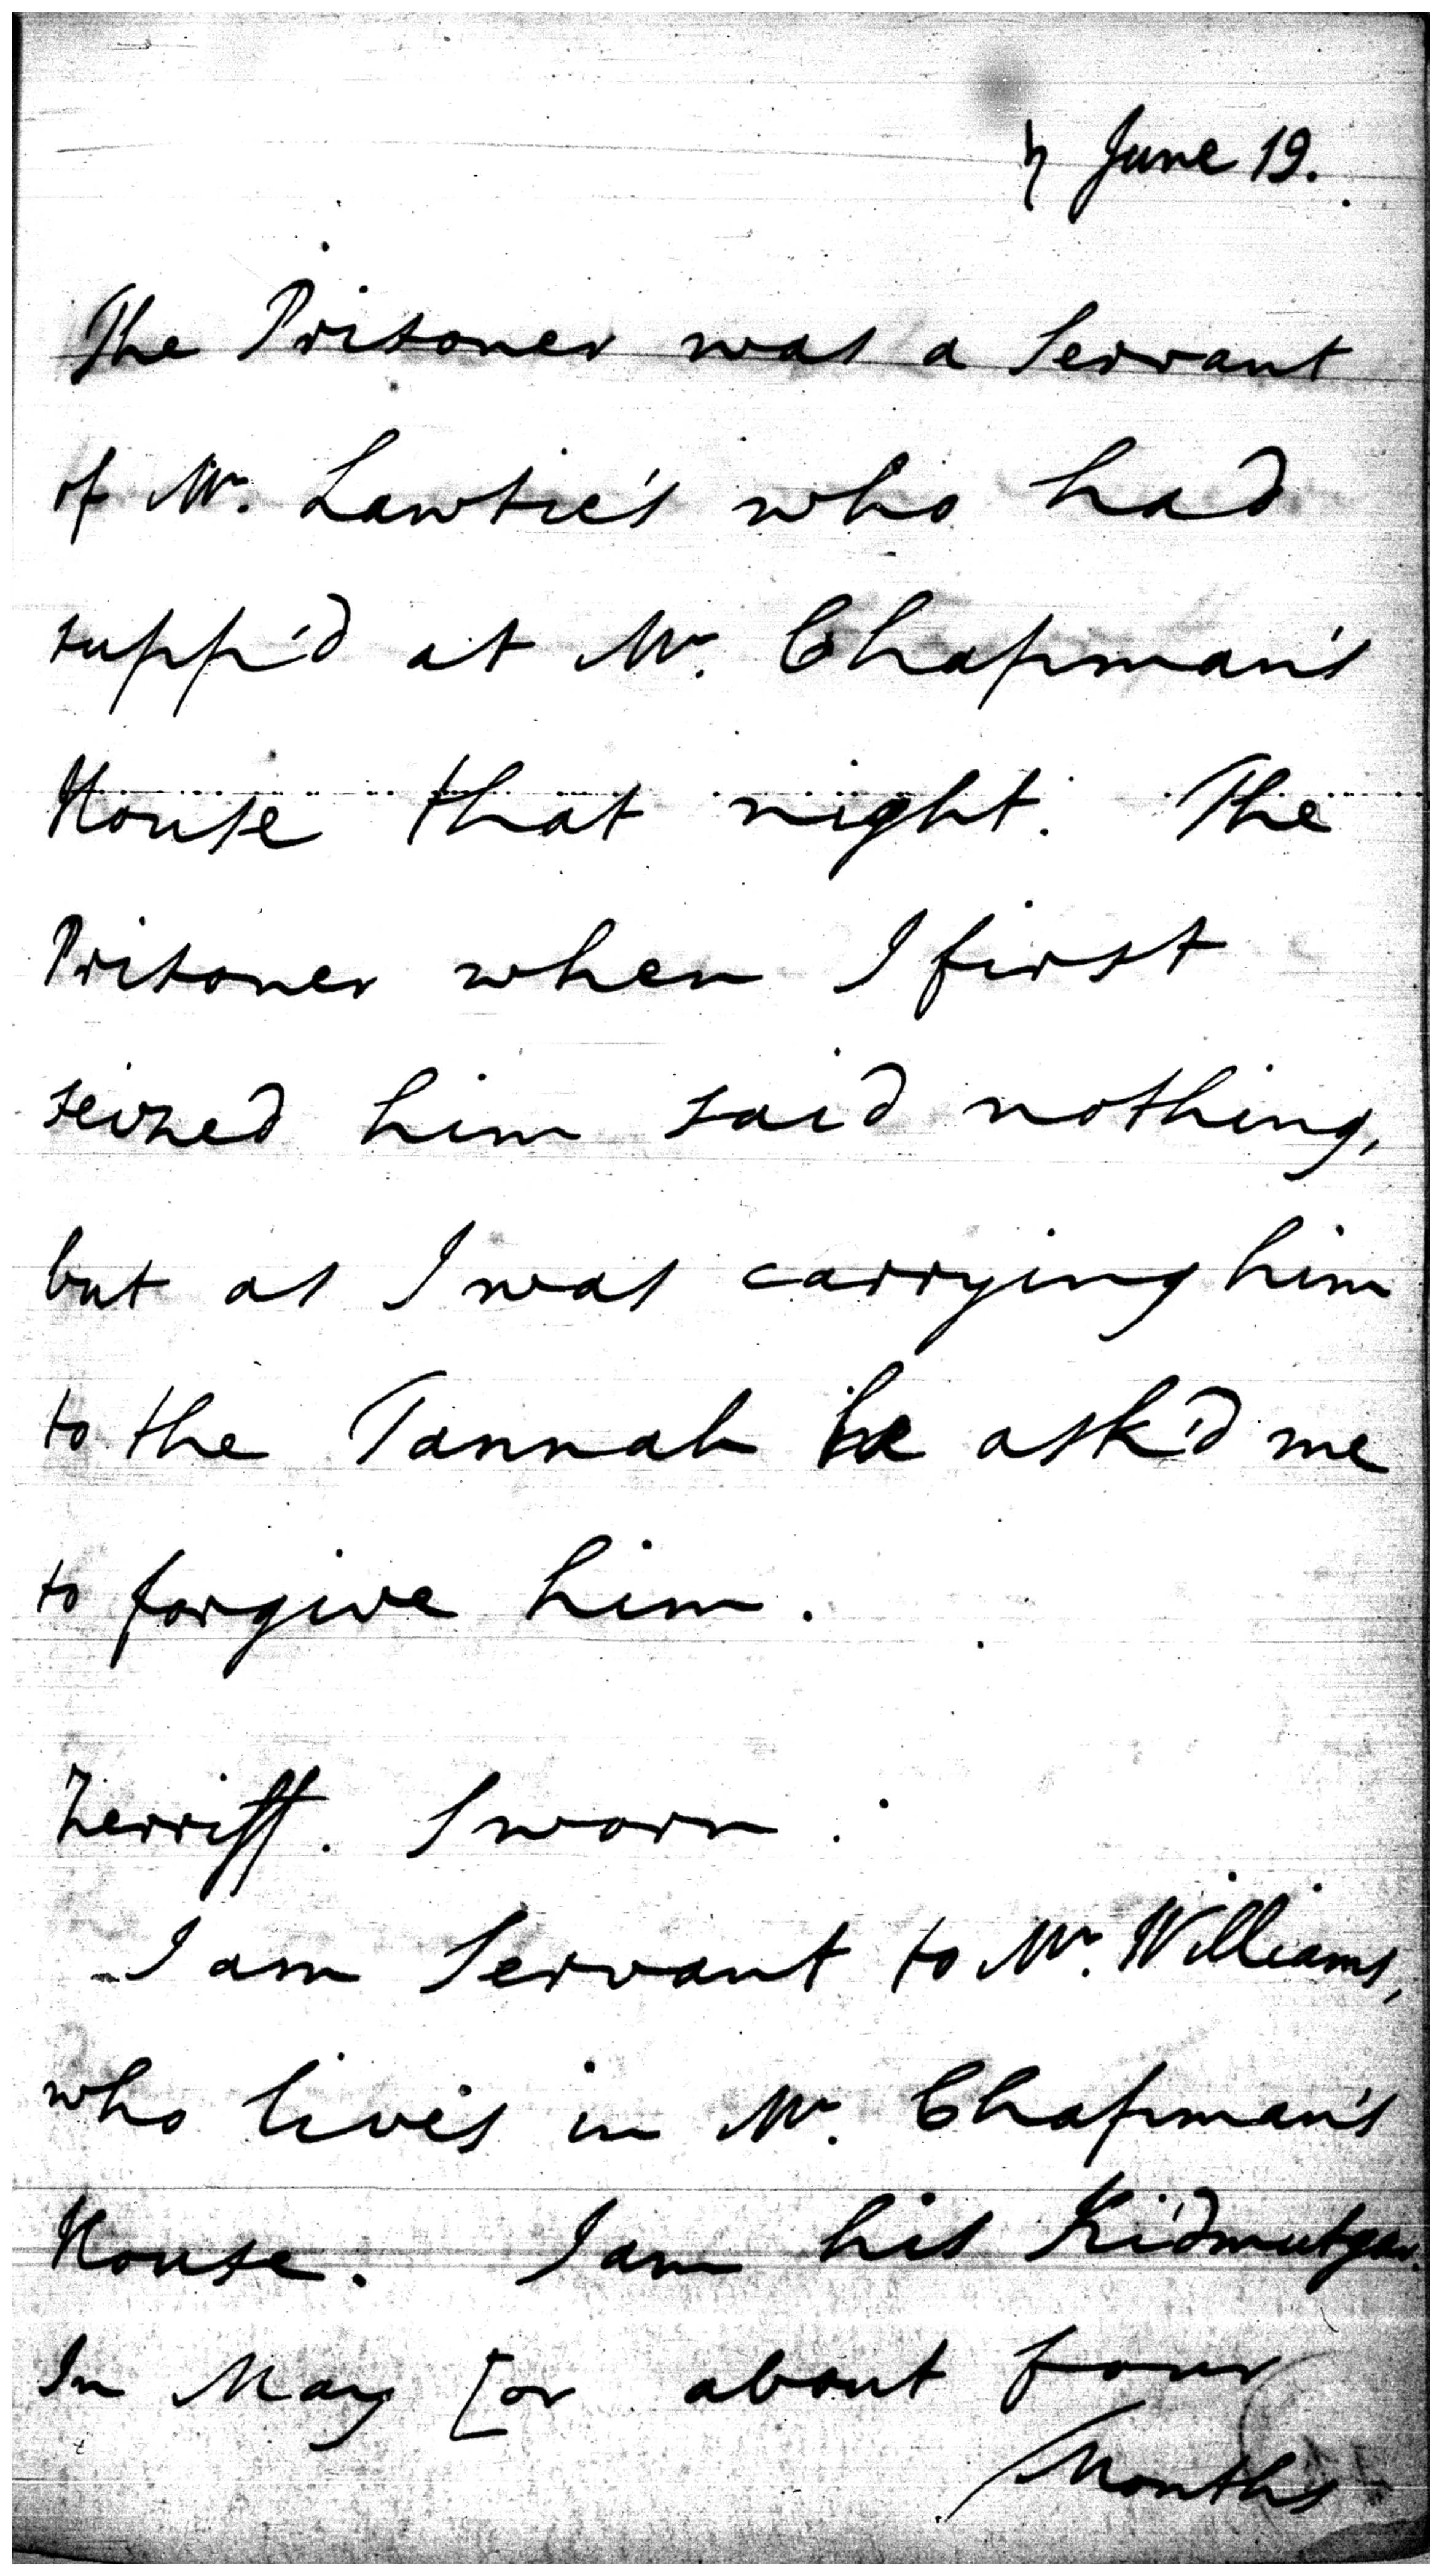 ♄ June 19.
The Prisoner was a Servant
of Mr. Lawtie's who had
supp'd at Mr. Chapman's
House that night. The
Prisoner when I first
seized him said nothing,
but as I was carrying him
to the Tannah he ask'd me
to forgive him.
Zerriff. Sworn.
I am Servant to Mr. Williams,
who lives in Mr. Chapman's
House. I am his Kidmutgar.
In May [or about four
Months